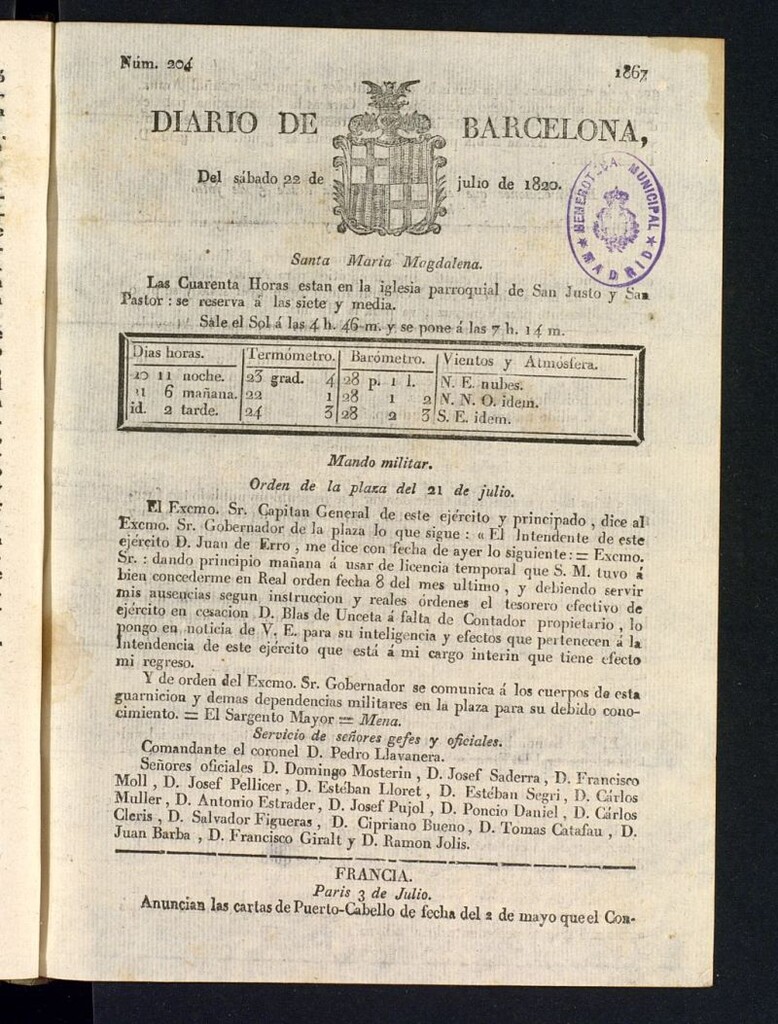 Núm. 204
1867
DIARIO DE BARCELONA,
Del sábado 22 de julio de 1820.
HEMEROTECA MUNICIPAL
★ MADRID ★
Santa María Magdalena.
Las Cuarenta Horas estan en la iglesia parroquial de San Justo y San
Pastor : se reserva á las siete y media.
Sale el Sol á las 4 h. 46 m. y se pone á las 7 h. 14 m.
Dias horas. Termómetro. Barómetro. Vientos y Atmósfera.
20 11 noche. 23 grad. 4 28 p. 1 l. N. E. nubes.
21 6 mañana. 22 1 28 1 2 N. N. O. idem.
id. 2 tarde. 24 3 28 2 3 S. E. idem.
Mando militar.
Orden de la plaza del 21 de julio.
El Excmo. Sr. Capitan General de este ejército y principado , dice al
Excmo. Sr. Gobernador de la plaza lo que sigue : « El Intendente de este
ejército D. Juan de Erro , me dice con fecha de ayer lo siguiente : = Excmo.
Sr. : dando principio mañana á usar de licencia temporal que S. M. tuvo á
bien concederme en Real orden fecha 8 del mes ultimo , y debiendo servir
mis ausencias segun instruccion y reales órdenes el tesorero efectivo de
ejército en cesacion D. Blas de Unceta á falta de Contador propietario , lo
pongo en noticia de V. E. para su inteligencia y efectos que pertenecen á la
Intendencia de este ejército que está á mi cargo interin que tiene efecto
mi regreso.
Y de orden del Excmo. Sr. Gobernador se comunica á los cuerpos de esta
guarnicion y demas dependencias militares en la plaza para su debido cono-
cimiento. = El Sargento Mayor = Mena.
Servicio de señores gefes y oficiales.
Comandante el coronel D. Pedro Llavanera.
Señores oficiales D. Domingo Mosterin , D. Josef Saderra , D. Francisco
Moll , D. Josef Pellicer , D. Estéban Lloret , D. Estéban Segri , D. Cárlos
Muller , D. Antonio Estrader , D. Josef Pujol , D. Poncio Daniel , D. Cárlos
Cleris , D. Salvador Figueras , D. Cipriano Bueno , D. Tomas Catafau , D.
Juan Barba , D. Francisco Giralt y D. Ramon Jolis.
FRANCIA.
Paris 3 de Julio.
Anuncian las cartas de Puerto-Cabello de fecha del 2 de mayo que el Con-